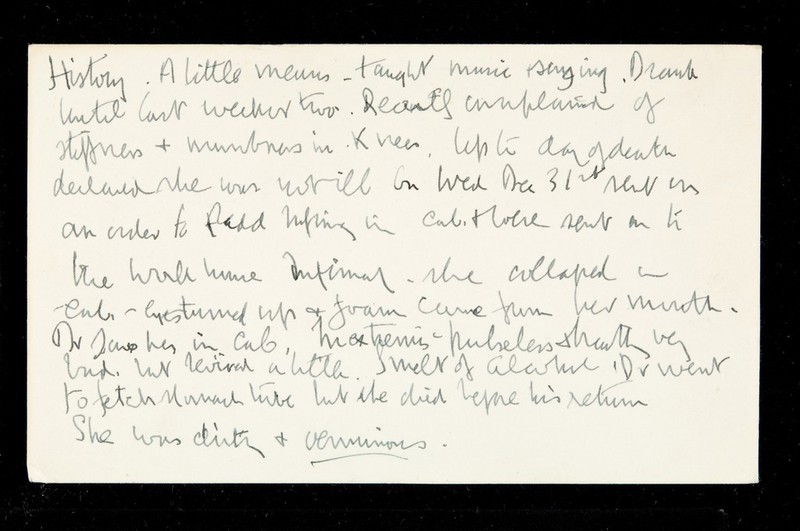 History. A little means - taught music & singing. Drank
until last week or two. Recently complained of
stiffness + numbness in Knees. Up to day of death
declared she was not ill On Wed Dec 31st sent on
an order to Padd Infirmy in cab. & were sent on to
the Work house Infirmary - she collapsed in
cab - eyes turned up & foam came from her mouth.
Dr saw her in Cab, In extremis - pulseless & breath very
bad. but revived a little. Smelt of Alcohol. Dr went
to fetch stomach tube but she died before his return
She was dirty & verminous.